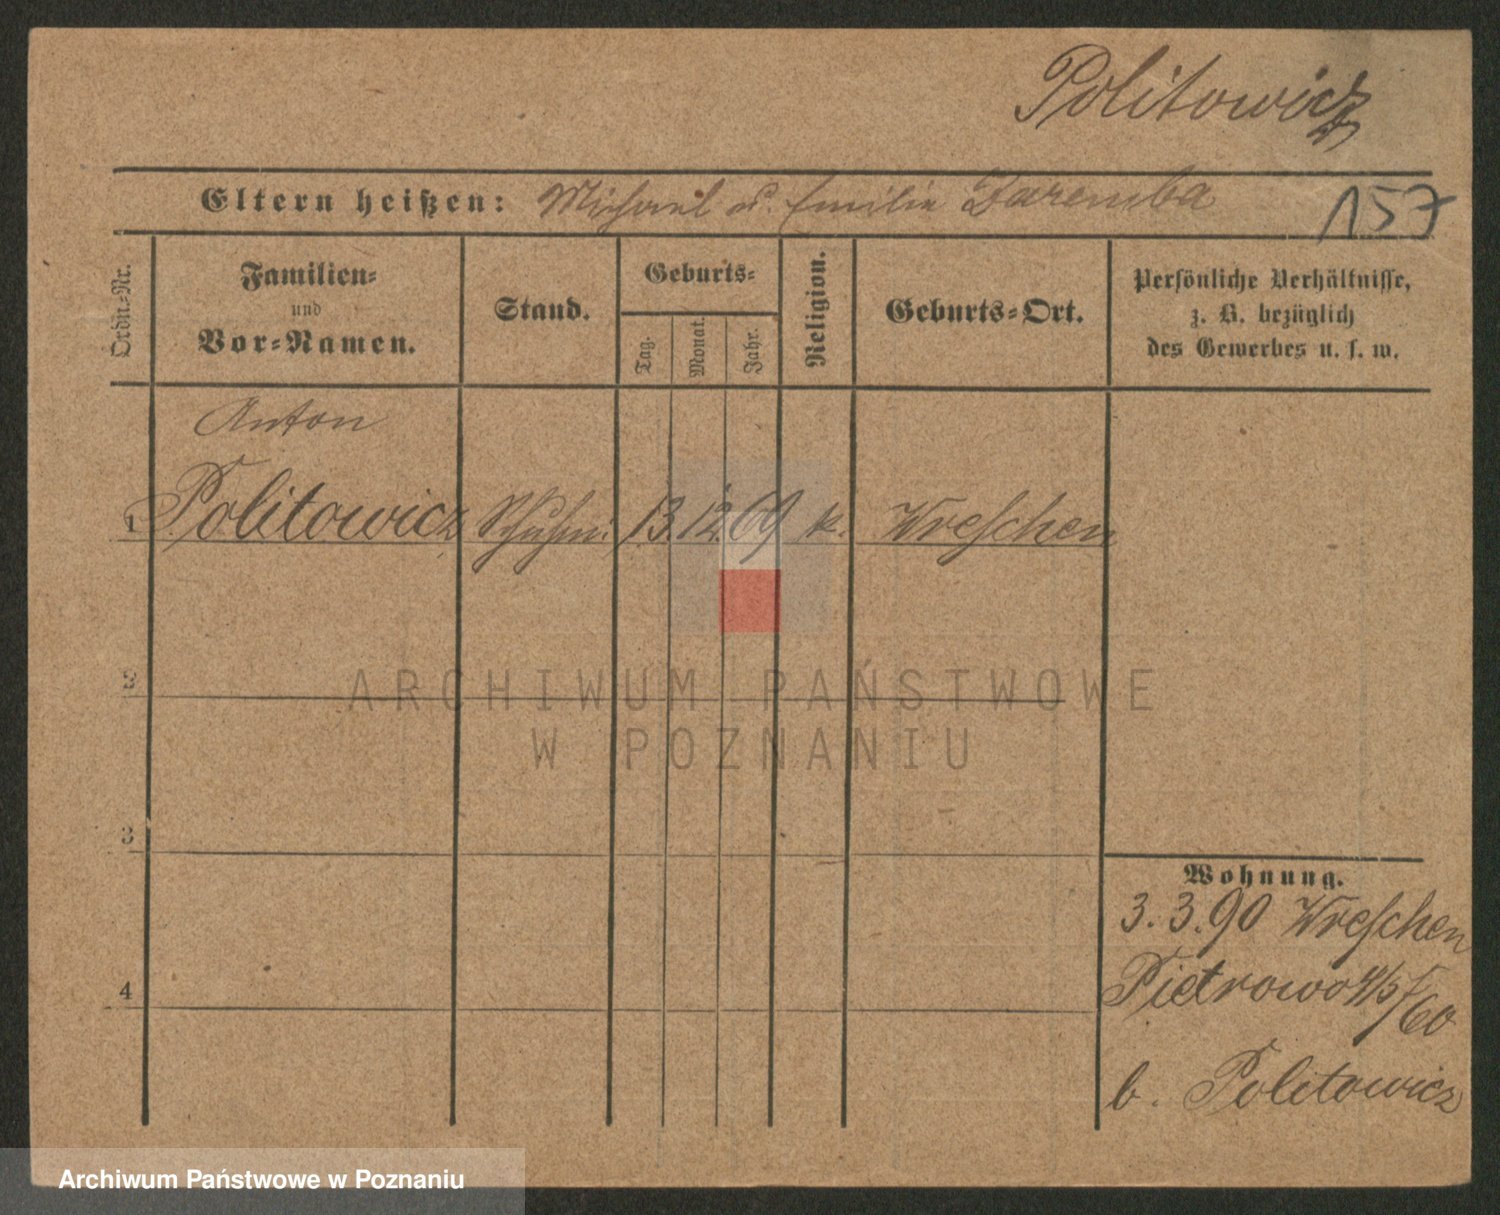 Politowicz
Eltern heißen: Michael u. Emilie Zaremba
157
Ordn.-Nr.
Familien-
und
Vor-Namen.
Stand.
Geburts-
Tag.
Monat.
Jahr.
Religion.
Geburts-Ort.
Persönliche Verhältnisse,
z. B. bezüglich
des Gewerbes u. s. w.
Anton
1 Politowicz Schuhm. 13. 12. 69 k. Wreschen
2
3
4
Wohnung.
3. 3. 90 Wreschen
Pietrowo 4/5
60
b. Politowicz
ARCHIWUM PAŃSTWOWE
W POZNANIU
Archiwum Państwowe w Poznaniu